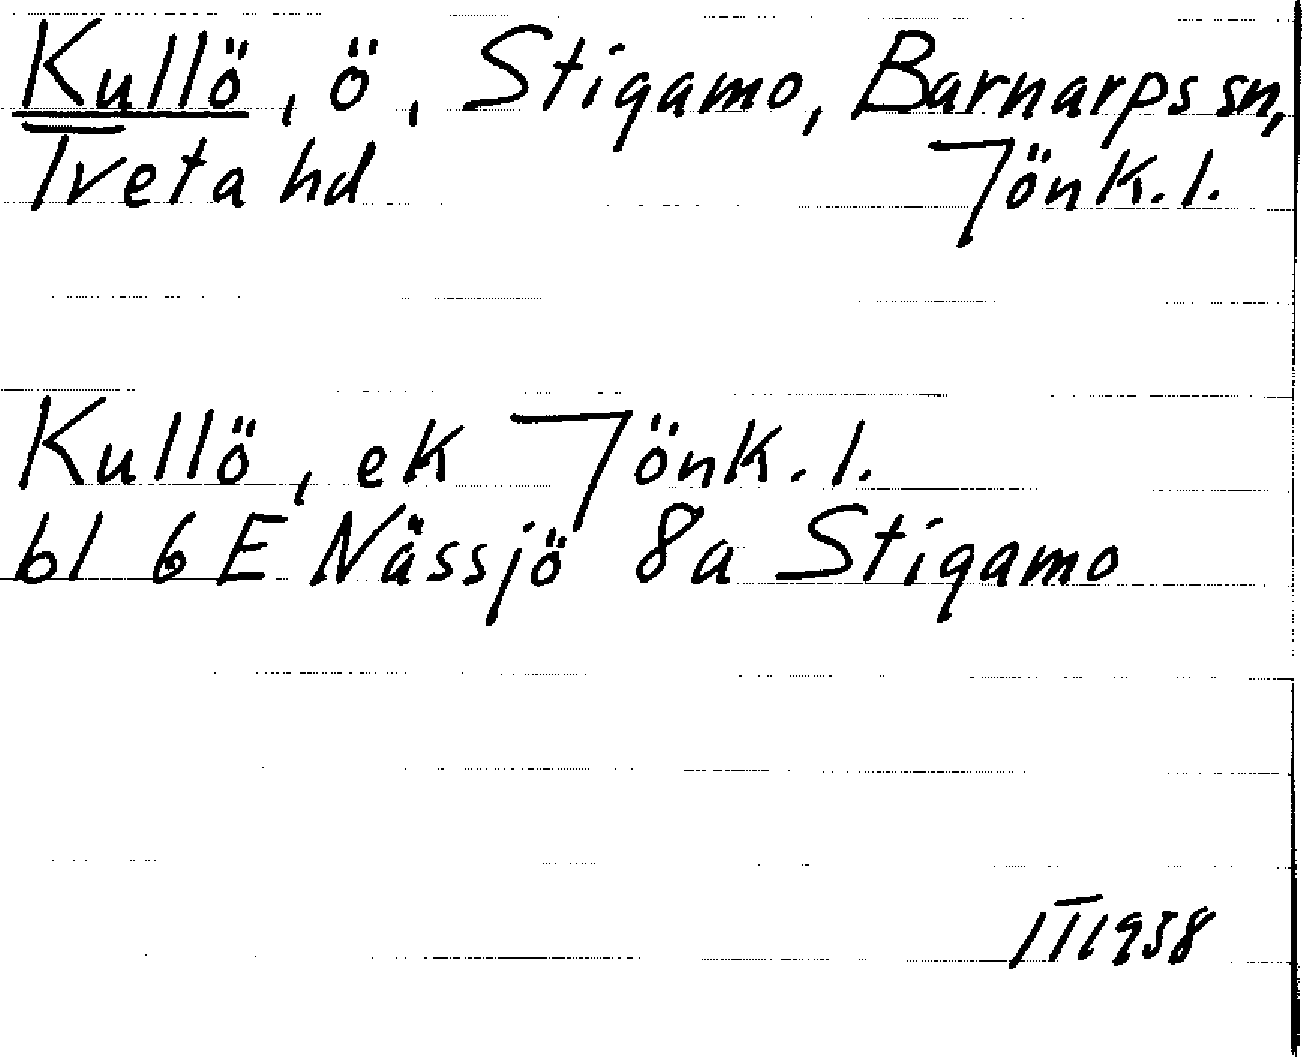 Kullö, ö, Stigamo, Barnarps sn,
Tveta hd Jönk. l.
Kullö, ek Jönk. l.
bl 6 E Nässjö 8a Stigamo
IT 1958